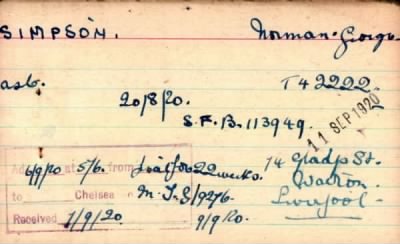 SIMPSON. Norman George
asb. T42222.
20/8/20.
S.F.B. 113949.
11 SEP 1920
6/9/20 at 5/6. from
14 Gladys St.
to Chelsea M.I.S/9276
Walton.
Liverpool
Received 7/9/20 9/9/20.